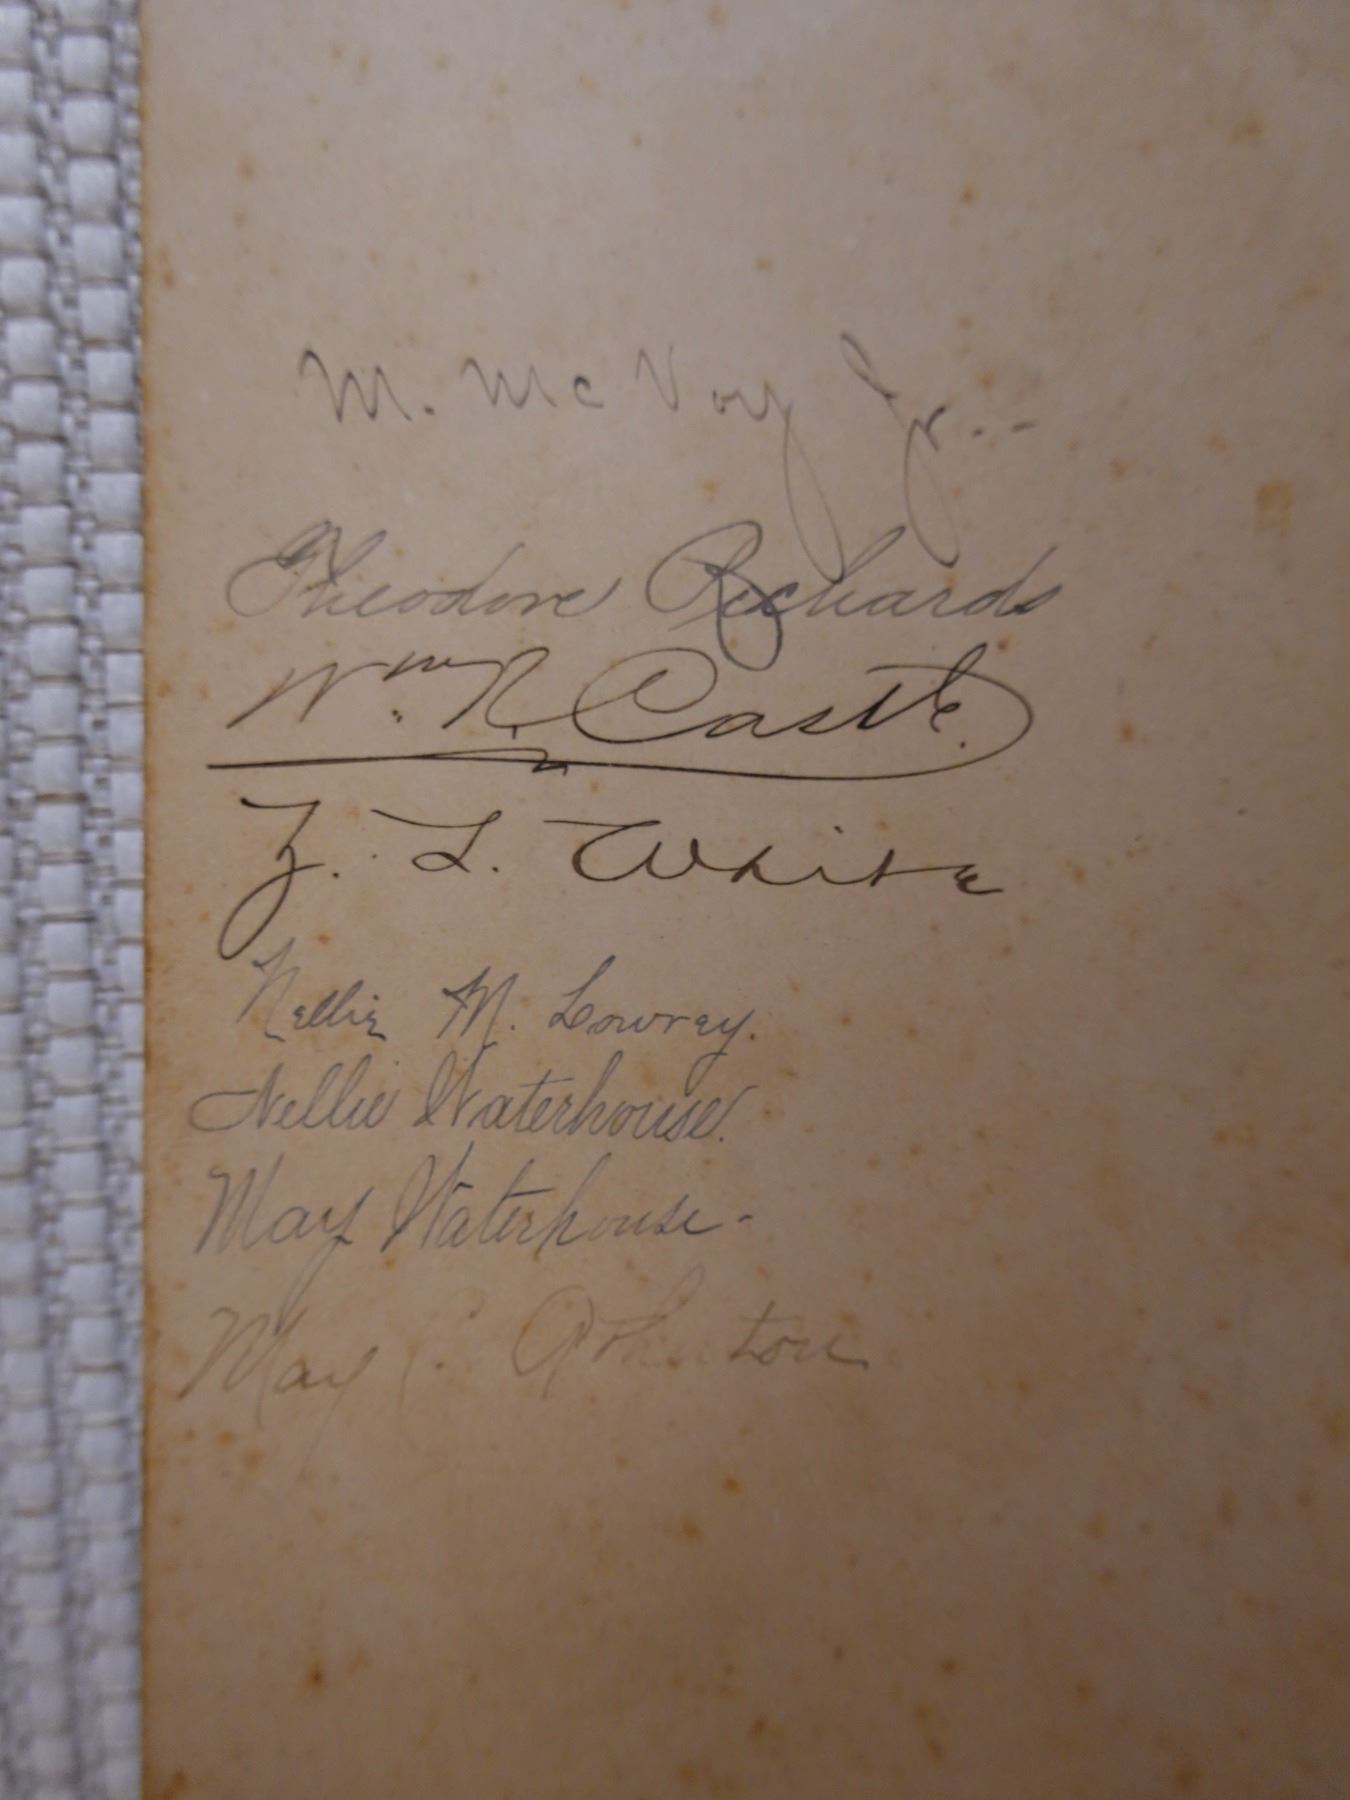 M. McVoy Jr.--
Theodore Richards
Wm. R. Castle.
Z. L. White
Nellie M. Lowrey.
Nellie Waterhouse.
May Waterhouse-
May C.